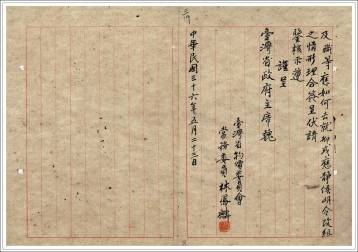 及職等應如何去就抑或應靜候明令改組
之情形理合簽呈伏請
鑒核示遵
謹呈
臺灣省政府主席魏
臺灣省物資委員會
常務委員林
中華民國三十六年五月二十三日